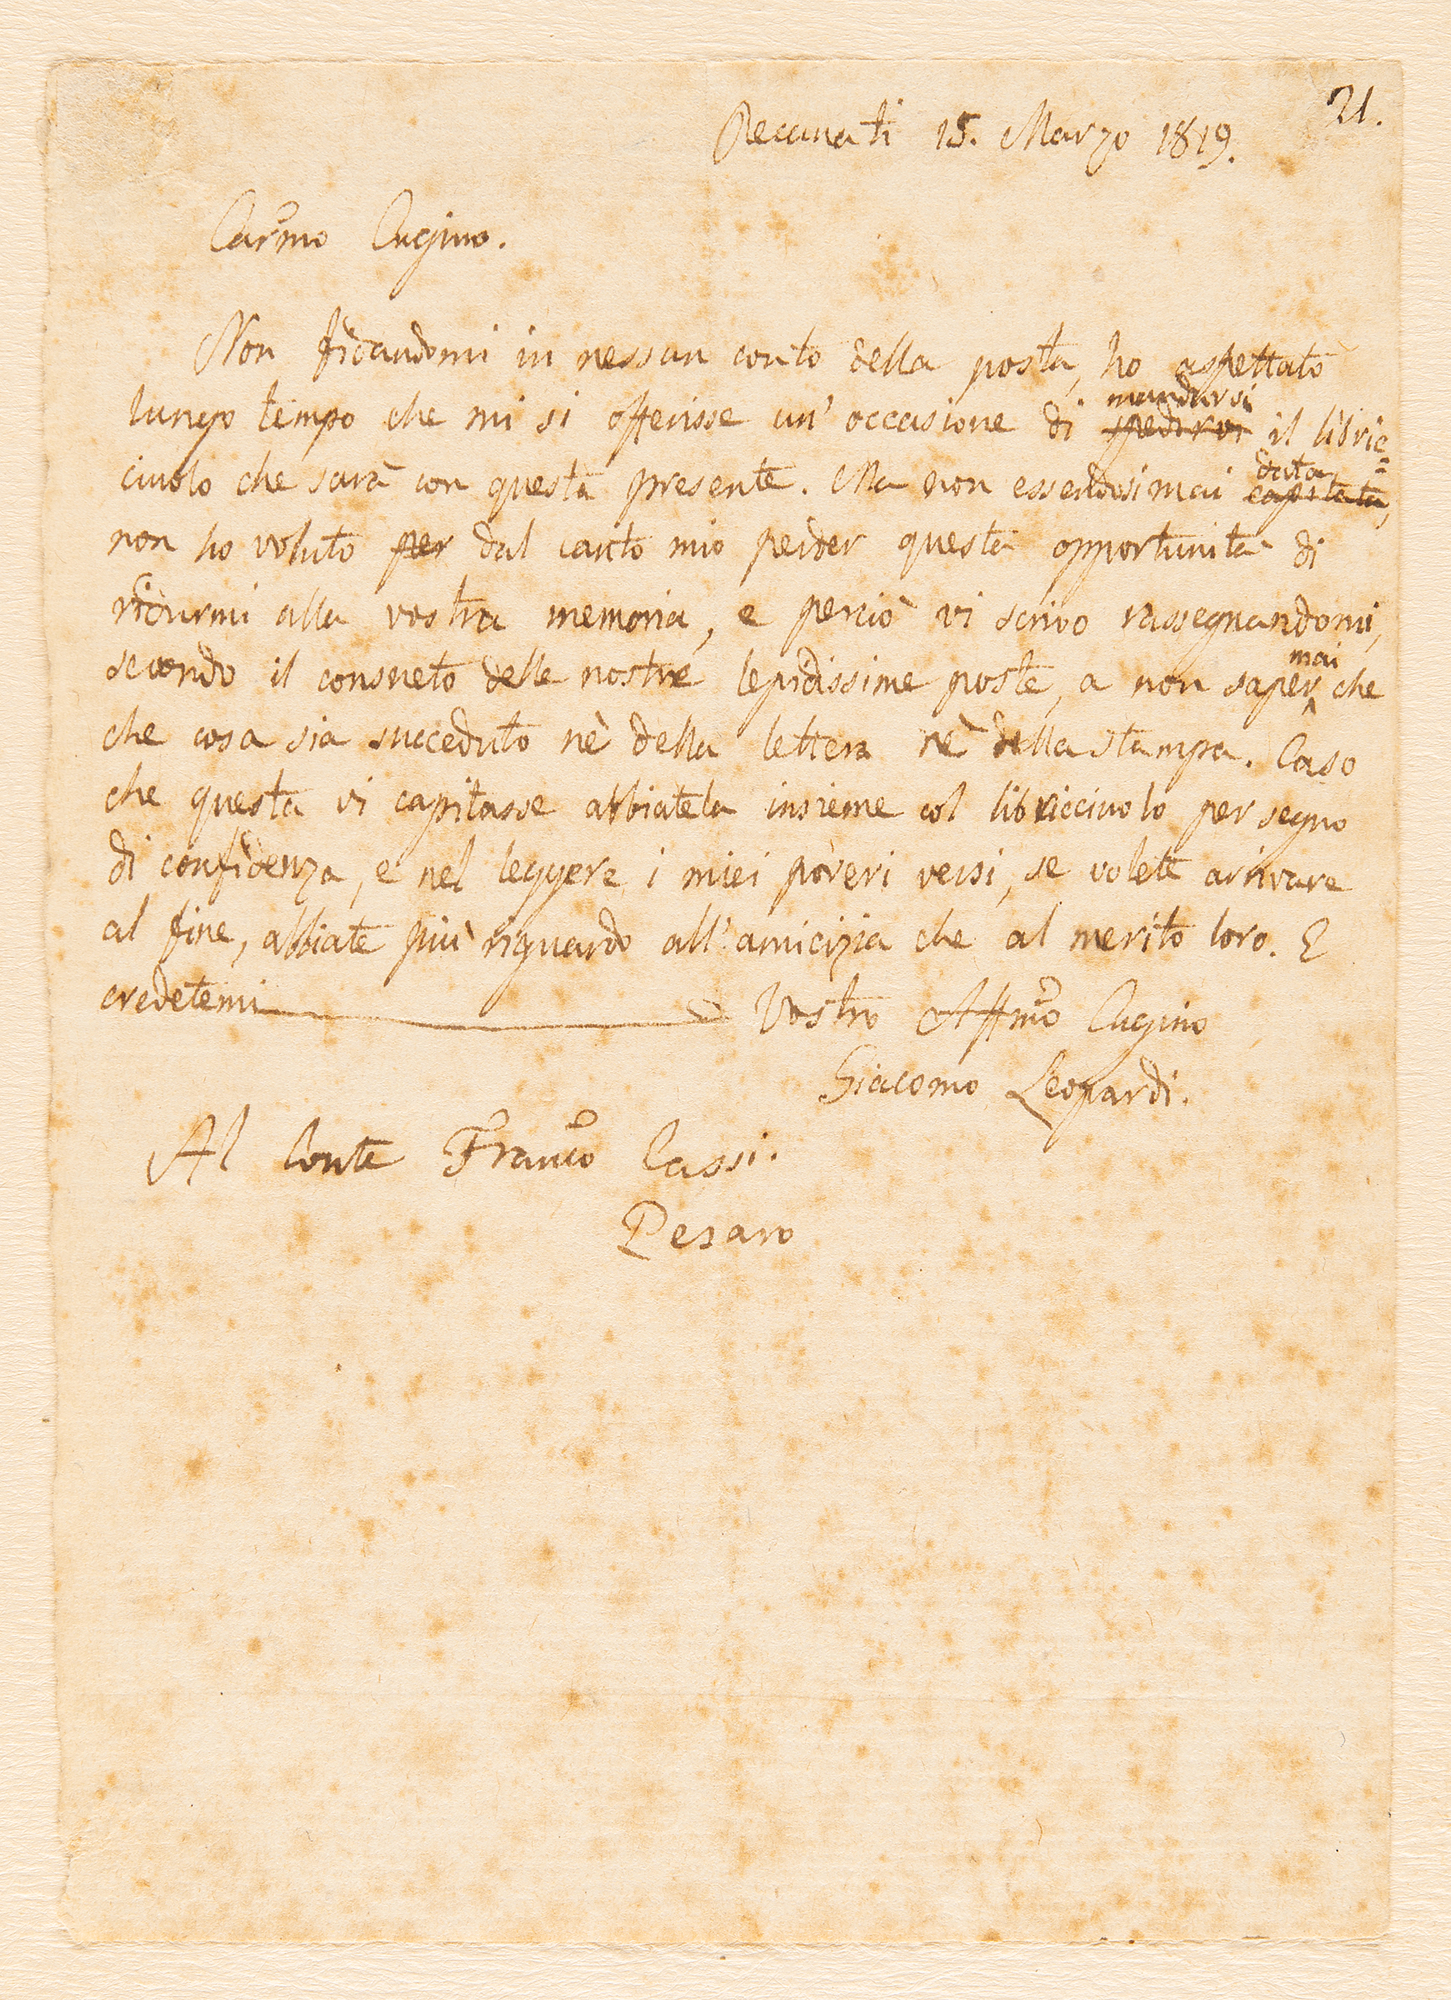 21.
Recanati 15. Marzo 1819.
Carmo Cugino.
Non fidandomi in nessun conto della posta, ho aspettato
lungo tempo che mi si offerisse un' occasione di spedirvi mandarvi il libric=
ciuolo che sarà con questa presente. Ma non essendosi mai capitata data,
non ho voluto per dal canto mio perder questa opportunità di
ridurmi alla vostra memoria, e perciò vi scrivo rassegnandomi,
secondo il consueto delle nostre lepidissime poste, a non saper mai che
che cosa sia succeduto nè della lettera nè della stampa. Caso
che questa vi capitasse abbiatela insieme col libricciuolo per segno
di confidenza, e nel leggere i miei poveri versi, se volete arrivare
al fine, abbiate più riguardo all' amicizia che al merito loro. E
credetemi Vostro Affmo Cugino
Giacomo Leopardi.
Al Conte Franco Cassi.
Pesaro